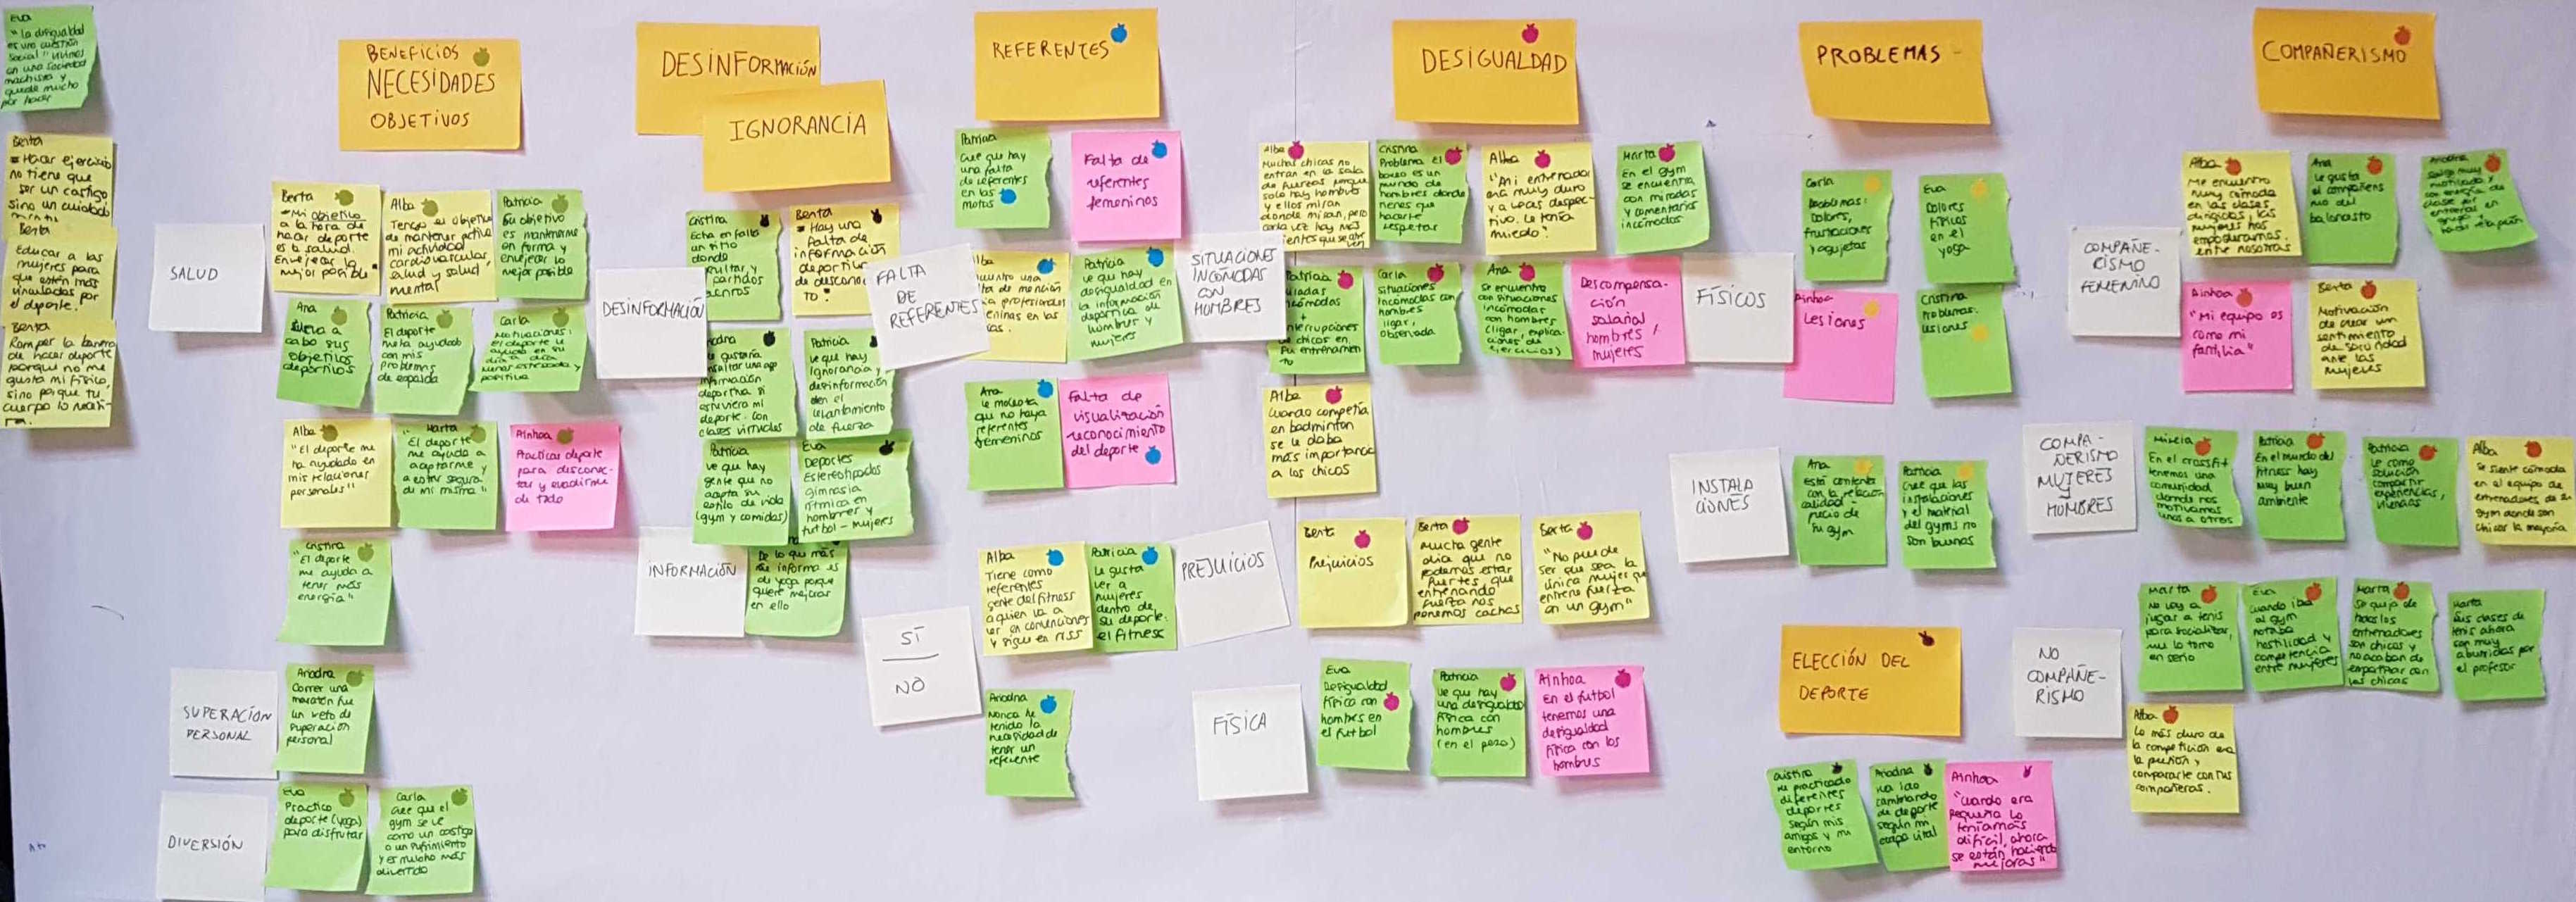 Eva
"La desigualdad
es una cuestión
social" vivimos
en una sociedad
machista y
queda mucho
por hacer
Berta
Hacer ejercicio
no tiene que
ser un castigo
sino un cuidado
Berta
Educar a las
mujeres para
que estén más
vinculadas por
el deporte.
Berta
Romper la barrera
de hacer deporte
porque no me
gusta mi físico,
sino porque tu
cuerpo lo necesi-
ta.
BENEFICIOS
NECESIDADES
OBJETIVOS
SALUD
Berta
"Mi objetivo
a la hora de
hacer deporte
es la salud.
Envejecer lo
mejor posible"
Alba
Tengo el objetivo
de mantener activa
mi actividad
cardiovascular,
salud y salud
mental
Patricia
Su objetivo
es mantenerme
en forma y
envejecer lo
mejor posible
Ana
lleva a
cabo sus
objetivos
deportivos
Patricia
El deporte
me ha ayudado
con mis
problemas
de espalda
Carla
Motivaciones:
el deporte le
ayuda en su
día a día
positiva
Alba
"El deporte me
ha ayudado en
mis relaciones
personales"
Marta
"El deporte
me ayuda a
aceptarme y
a estar segura
de mi misma"
Ainhoa
Practicas deporte
para desconec-
tar y evadirme
de todo
Cristina
"El deporte
me ayuda a
tener más
energía"
SUPERACIÓN
PERSONAL
Ariadna
Correr una
maratón fue
un reto de
superación
personal
DIVERSIÓN
Eva
Practico
deporte (yoga)
para disfrutar
Carla
Cree que el
gym se ve
como un castigo
o un sufrimiento
y es mucho más
divertido
DESINFORMACIÓN
IGNORANCIA
DESINFORMACIÓN
Cristina
Echa en falta
un sitio
donde
consultar, y
partidos
Berta
"Hay una
falta de
información
deportiva
de desconoci
to"
Ariadna
Le gustaría
consultar una app
información
deportiva si
estuviera mi
deporte. con
clases virtuales
Patricia
Ve que hay
Ignorancia y
desinformación
en el
levantamiento
de fuerza
Patricia
Ve que hay
gente que no
adapta su
estilo de vida
(gym y comidas)
Eva
Deportes
Estereotipados
gimnasia
rítmica en
hombres y
futbol - mujeres
INFORMACIÓN
De lo que más
se informa es
de yoga porque
quiere mejorar
en ello
REFERENTES
Patricia
Cree que hay
una falta
de referentes
en las
motos
Falta de
referentes
femeninos
FALTA
DE
REFERENTES
Alba
Encuentro una
falta de mención
a profesionales
femeninas en las
Patricia
Ve que hay
desigualdad en
la información
deportiva de
hombres y
mujeres
Ana
Le molesta
que no haya
referentes
femeninos
Falta de
visualización
reconocimiento
del deporte
SÍ
NO
Alba
Tiene como
referentes
gente del fitness
a quien va a
ver en convenciones
y sigue en rrss
Patricia
Le gusta
ver a
mujeres
dentro de
su deporte:
el fitness
Ariadna
Nunca he
tenido la
necesidad de
tener un
referente
DESIGUALDAD
SITUACIONES
INCÓMODAS
CON
HOMBRES
Alba
Muchas chicas no
entran en la sala
de fuerzas porque
solo hay hombres
y ellos miran
donde miran, pero
cada vez hay más
Cristina
Problema: El
boxeo es un
mundo de
hombres donde
tienes que
hacerte
respetar
Alba
"Mi entrenador
era muy duro
y a veces despec-
tivo. Le tenía
miedo"
Marta
En el gym
se encuentra
con miradas
y comentarios
incómodos
Patricia
miradas
incómodas
+
interrupciones
de chicos en
su entrenamien
to
Carla
situaciones
incómodas con
hombres
ligar,
observada
Ana
Se encuentra
con situaciones
incómodas
con hombres
(ligar, explica-
ciones de
ejercicios)
Descompensa-
ción
salarial
hombres/
mujeres
Alba
Cuando competía
en badminton
se le daba
más importancia
a los chicos
PREJUICIOS
Berta
Prejuicios
Berta
Mucha gente
decía que no
podemos estar
fuertes, que
entrenando
fuerza nos
ponemos cachas
Berta
"No puede
ser que sea la
única mujer que
entrene fuerza
en un gym"
FÍSICA
Eva
Desigualdad
física con
hombres en
el futbol
Patricia
Ve que hay
una desigualdad
física con
hombres
(en el peso)
Ainhoa
En el futbol
tenemos una
desigualdad
física con los
hombres
PROBLEMAS
FÍSICOS
Carla
Problemas:
Dolores,
frustraciones
y agujetas
Eva
Dolores
físicos
en el
yoga
Ainhoa
Lesiones
Cristina
Problemas:
Lesiones
INSTALA
CIONES
Ana
Está contenta
con la relación
calidad
precio de
su gym
Patricia
Cree que las
instalaciones
y el material
del gyms no
son buenas
ELECCIÓN DEL
DEPORTE
Cristina
He practicado
diferentes
deportes
según mis
amigos y mi
entorno
Ariadna
Ha ido
cambiando
de deporte
según mi
etapa vital
Ainhoa
"Cuando era
pequeña lo
teníamos
difícil, ahora
se están haciendo
mejoras"
COMPAÑERISMO
COMPAÑE-
RISMO
FEMENINO
Alba
Me encuentro
muy cómoda
en las clases
dirigidas, las
mujeres nos
empoderamos
entre nosotras
Ana
Le gusta
el compañeris
mo del
baloncesto
Ariadna
Salgo muy
motivada y
con energía de
clase por
entrenar en
grupo
Ainhoa
"Mi equipo es
como mi
familia"
Berta
Motivación
de crear un
sentimiento
de sororidad
ante las
mujeres
COMPA-
ÑERISMO
MUJERES
Y
HOMBRES
Mireia
En el crossfit
tenemos una
comunidad
donde nos
motivamos
unos a otros
Patricia
En el mundo del
fitness hay
muy buen
ambiente
Patricia
Ve como
solución
compartir
experiencias,
vivencias
Alba
Se siente cómoda
en el equipo de
entrenadores de su
gym donde son
chicas la mayoría
NO
COMPAÑE-
RISMO
Marta
No voy a
jugar a tenis
para socializar,
me lo tomo
en serio
Eva
Cuando iba
al gym
notaba
hostilidad y
competencia
entre mujeres
Marta
Se queja de
todos los
entrenadores
son chicos y
no acaban de
empatizar con
las chicas
Marta
Sus clases de
tenis ahora
son muy
aburridas por
el profesor
Alba
Lo más duro de
la competición era
la presión y
compararte con tus
compañeras.